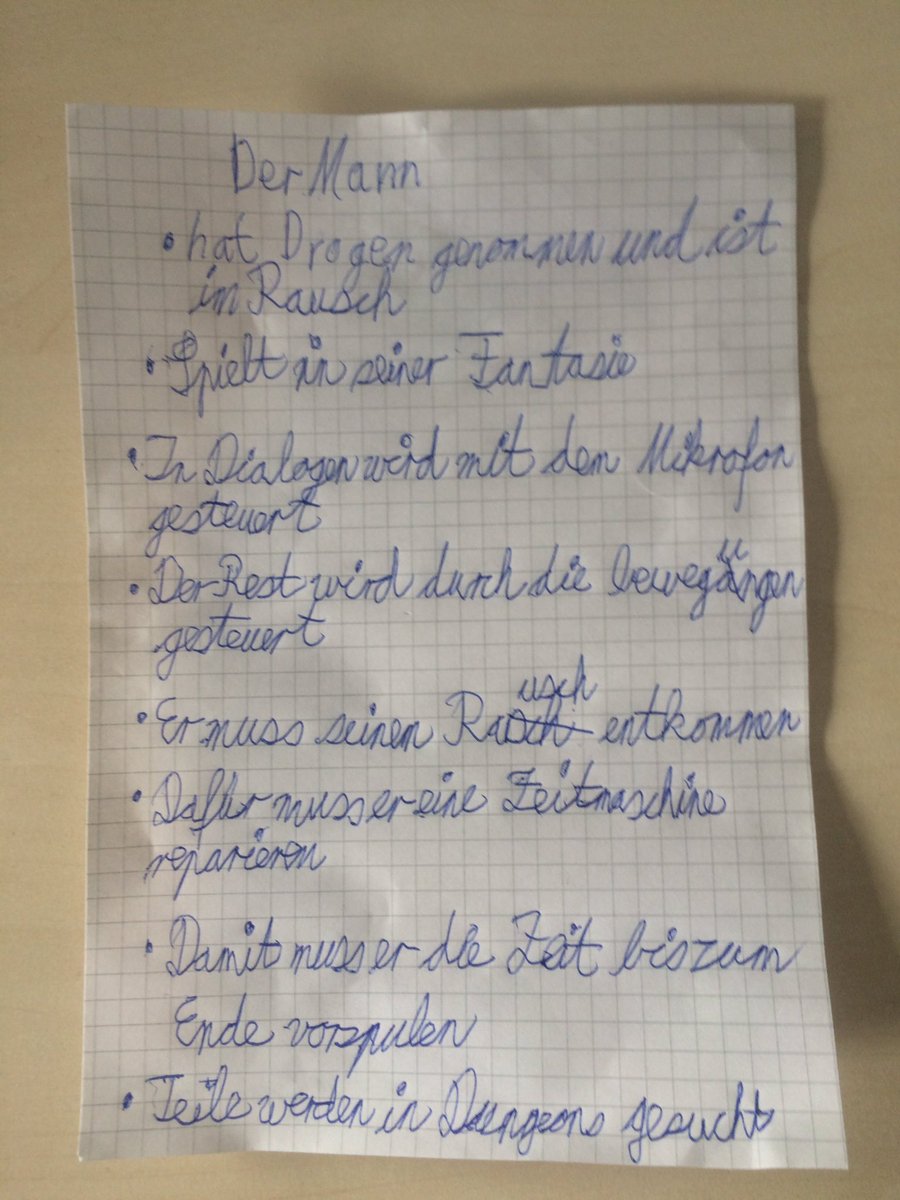 Der Mann
• hat Drogen genommen und ist
in Rausch
• Spielt in seiner Fantasie
• In Dialogen wird mit dem Mikrofon
gesteuert
• Der Rest wird durch die bewegungen
gesteuert
• Er muss seinen Rausch entkommen
• Dafür muss er eine Zeitmaschine
reparieren
• Damit muss er die Zeit bis zum
Ende vorspulen
• Teile werden in Dungeons gesucht